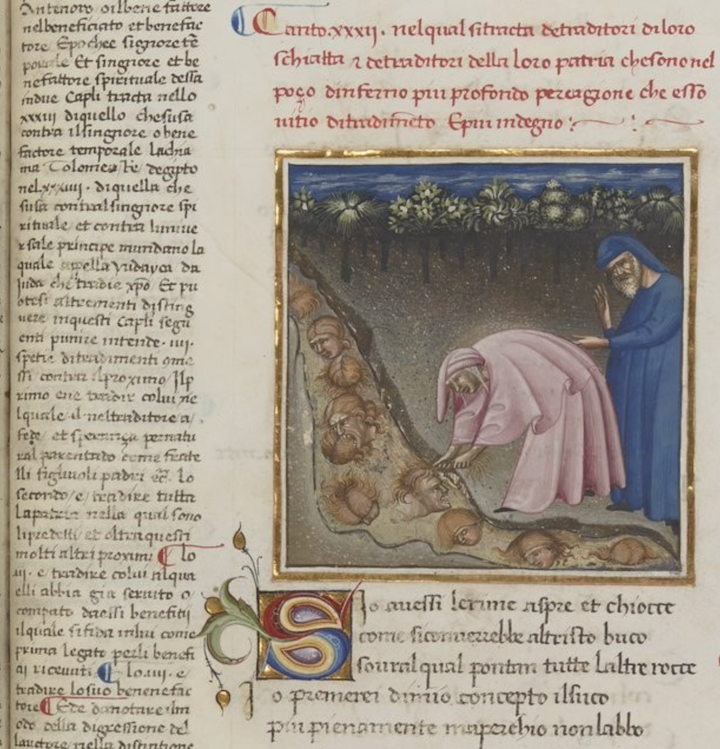 Antenoro oilbene fattore
nelbeneficiato et benefac
tore Epochee signore te
porale Et singniore et be
nefattore spirituale dessa
indue Capli tracta nello
xxxiii diquello chesusa
contra ilsingniore o bene
factore temporale lachia
ma Tolomea degipto
nel xxxiiii. diquella che
susa contralsingniore spi
rituale et contra luniue
rsale principe mundano la
quale appella yudayca da
Juda che tradie xpo. Et pu
otesi altrementi disting
uere inquesti Capli segu
enti punire intende. iiii.
spetie ditradimenti
contra ilproximo. Ilp
rimo ene tradir colui ne
lquale il neltraditore a
fede, et speranza pernatu
ral parentado come frate
lli figluuoli padri etc. Lo
secondo, e, tradire tutta
lapatria nella qual sono
lipredetti et oltraquesti
molti altri proximi Lo
iii. e tradire colui alqua
elli abbia gia seruito o
compato daessi benefitii
ilquale sifida inlui come
prima legato perli benefi
ci riceuuti Lo.iiii. e
tradire losuo benenefac
tore Ede danotare ilm
odo della digressione del
lauctore nella distintione
Canto.xxxii. nelqual sitracta detraditori diloro
schiatta et detraditori della loro patria chesono nel
pozo dinferno piu profondo percagione che esso
uitio ditradimeto Epiu indegno:
S Io auessi lerime aspre et chiocce
come siconuerrebbe altristo buco
soural qual pontan tutte laltre rocce
Io premerei dimio concepto ilsuco
piu pienamente maperchio nonlabbo